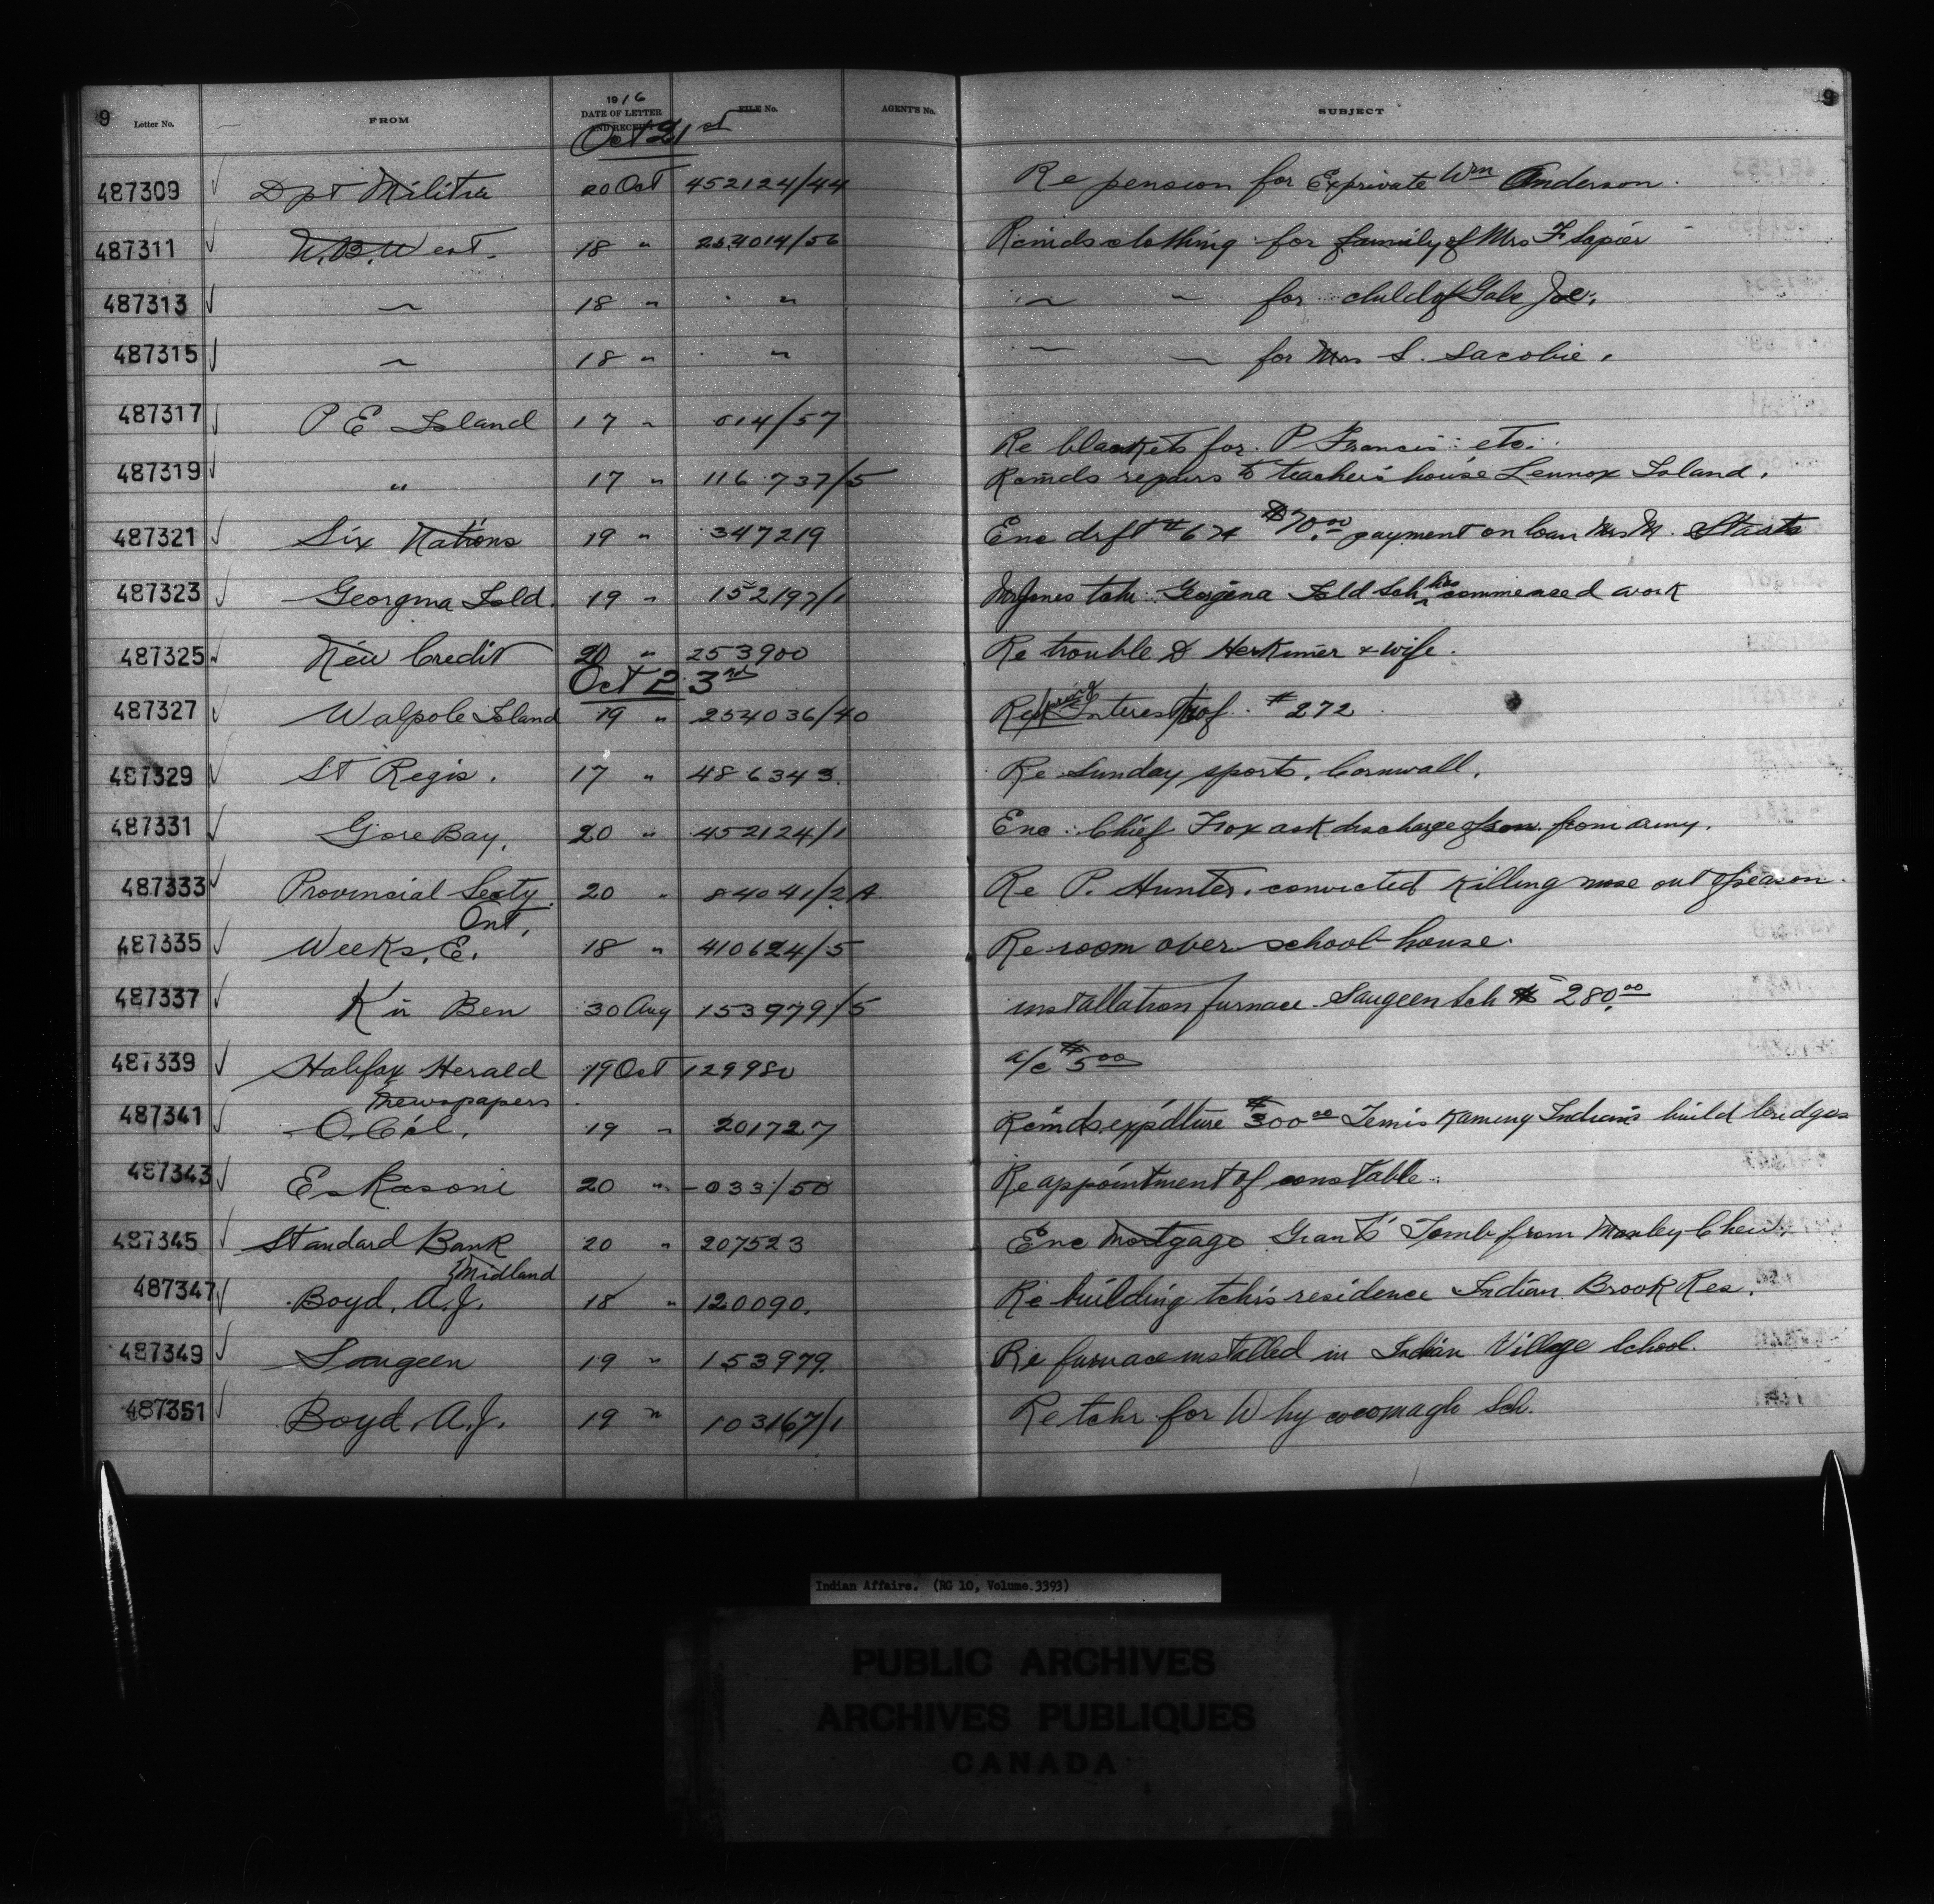 9 Letter No. FROM 1916 DATE OF LETTER AND RECEIPT FILE No. AGENT'S No. SUBJECT 9
Oct 21st
487309 Dpt Militia 20 Oct 452124/44 Re pension for Exprivate Wm Anderson.
487311 N.B. West. 18 " 254014/56 Rcmds clothing for family of Mrs F. Sapier
487313 " 18 " " " " for child of Gabe Joe.
487315 " 18 " " " " for Mrs S. Sacobie.
487317 P E Island 17 " 014/57 Re blankets for P Francis etc.
487319 " 17 " 116737/5 Rcmds repairs to teacher's house Lennox Island.
487321 Six Nations 19 " 347219 Enc drft # 674 $70.00 payment on loan Mrs M. Staats
487323 Georgina Isld. 19 " 152197/1 Mr Jones tchr. Georgina Isld Sch has commenced work
487325 New Credit 20 " 253900 Re trouble D Herkimer & wife.
Oct 23rd
487327 Walpole Island 19 " 254036/40 Interest of #272
487329 St Regis. 17 " 486343. Re Sunday sports, Cornwall.
487331 Gore Bay. 20 " 452124/1 Enc. Chief Fox ask discharge of son from army.
487333 Provincial Secty. 20 " 84041/2A. Re P. Hunter, convicted killing muse out of season.
Ont.
487335 Weeks, E. 18 " 410624/5 Re room over school-house.
487337 Ben 30 Aug 153979/5 installation furnace Saugeen Sch $280.00
487339 Halifax Herald 19 Oct 129980 a/c $5.00
newspapers
487341 19 " 201727 Rcmds expdture $300.00 Temiskaming Indians build bridges
487343 Eskasoni 20 " 033/50 Re appointment of constable.
487345 Standard Bank 20 " 207523 Enc Mortgage Grants' Tomb from Manley Chew.
Midland
487347 Boyd, A.J. 18 " 120090. Re building tchr's residence Indian Brook Res.
487349 Saugeen 19 " 153979. Re furnace installed in Indian Village School.
487351 Boyd, A.J. 19 " 103167/1 Re tchr for Whycocomagh Sch.
Indian Affairs. (RG 10, Volume.3393)
PUBLIC ARCHIVES
ARCHIVES PUBLIQUES
CANADA